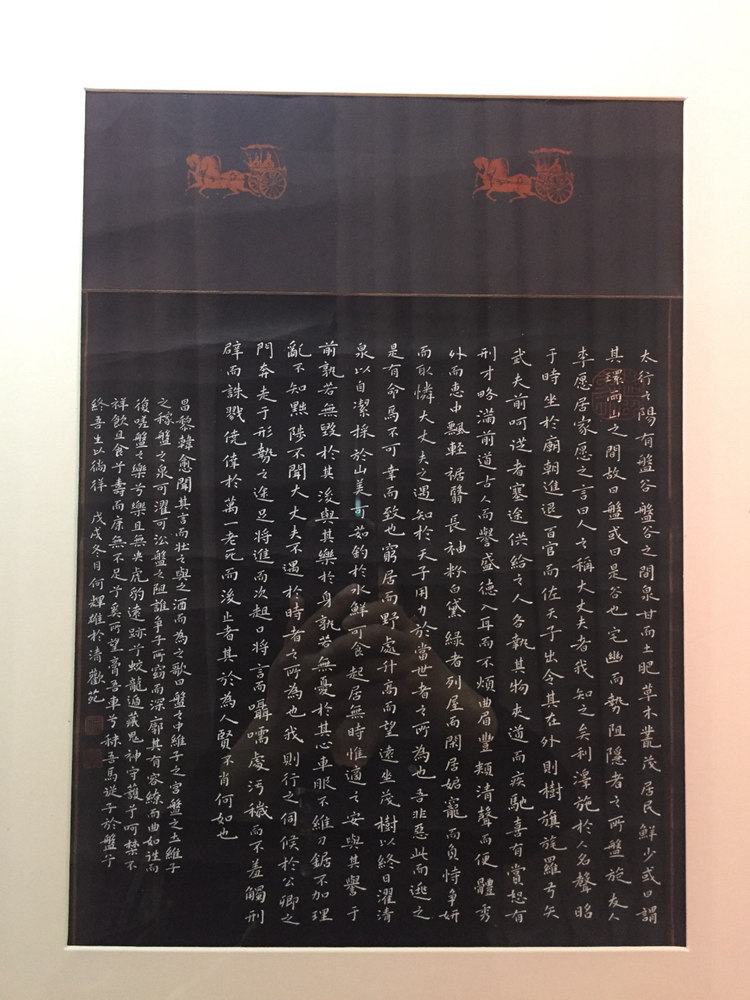 太行之陽有盤谷盤谷之間泉甘而土肥草木藂茂居民鮮少或曰謂
其環兩山之間故曰盤或曰是谷也宅幽而勢阻隱者之所盤旋友人
李愿居家愿之言曰人之稱大丈夫者我知之矣利澤施於人名聲昭
于時坐於廟朝進退百官而佐天子出令其在外則樹旗旄羅弓矢
武夫前呵從者塞途供給之人各執其物夾道而疾馳喜有賞怒有
刑才畯滿前道古人而譽盛德入耳而不煩曲眉豐頰清聲而便體秀
外而惠中飄輕裾翳長袖粉白黛綠者列屋而閑居妬寵而負恃爭妍
而取憐大丈夫之遇知於天子用力於當世者之所為也吾非惡此而逃之
是有命焉不可幸而致也窮居而野處升高而望遠坐茂樹以終日濯清
泉以自潔採於山美可茹釣於水鮮可食起居無時惟適之安與其譽于
前孰若無毀於其後與其樂於身孰若無憂於其心車服不維刀鋸不加理
亂不知黜陟不聞大丈夫不遇於時者之所為也我則行之伺候於公卿之
門奔走于形勢之途足將進而次趄口將言而囁嚅處污穢而不羞觸刑
辟而誅戮僥倖於萬一老死而後止者其於為人賢不肖何如也
昌黎韓愈聞其言而壯之與之酒而為之歌曰盤之中維子之宮盤之土維子
之稼盤之泉可濯可沿盤之阻誰爭子所窈而深廓其有容繚而曲如往而
復嗟盤之樂兮樂且無央虎豹遠跡兮蛟龍遁藏鬼神守護兮呵禁不
祥飲且食兮壽而康無不足兮奚所望膏吾車兮秣吾馬從子於盤兮
終吾生以徜徉 戊戌冬月何輝雄於清歡苑